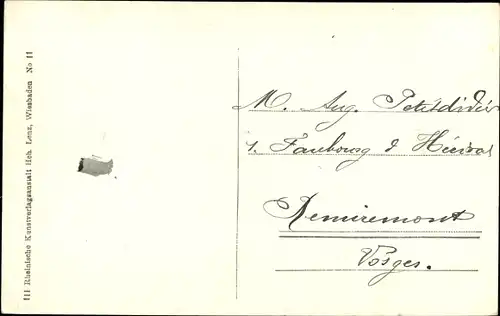 III Rheinische Kunstverlagsanstalt Hch. Lenz, Wiesbaden No 11
M. Aug. Petitdidier
1. Faubourg d'Hérival
Remiremont
Vosges.